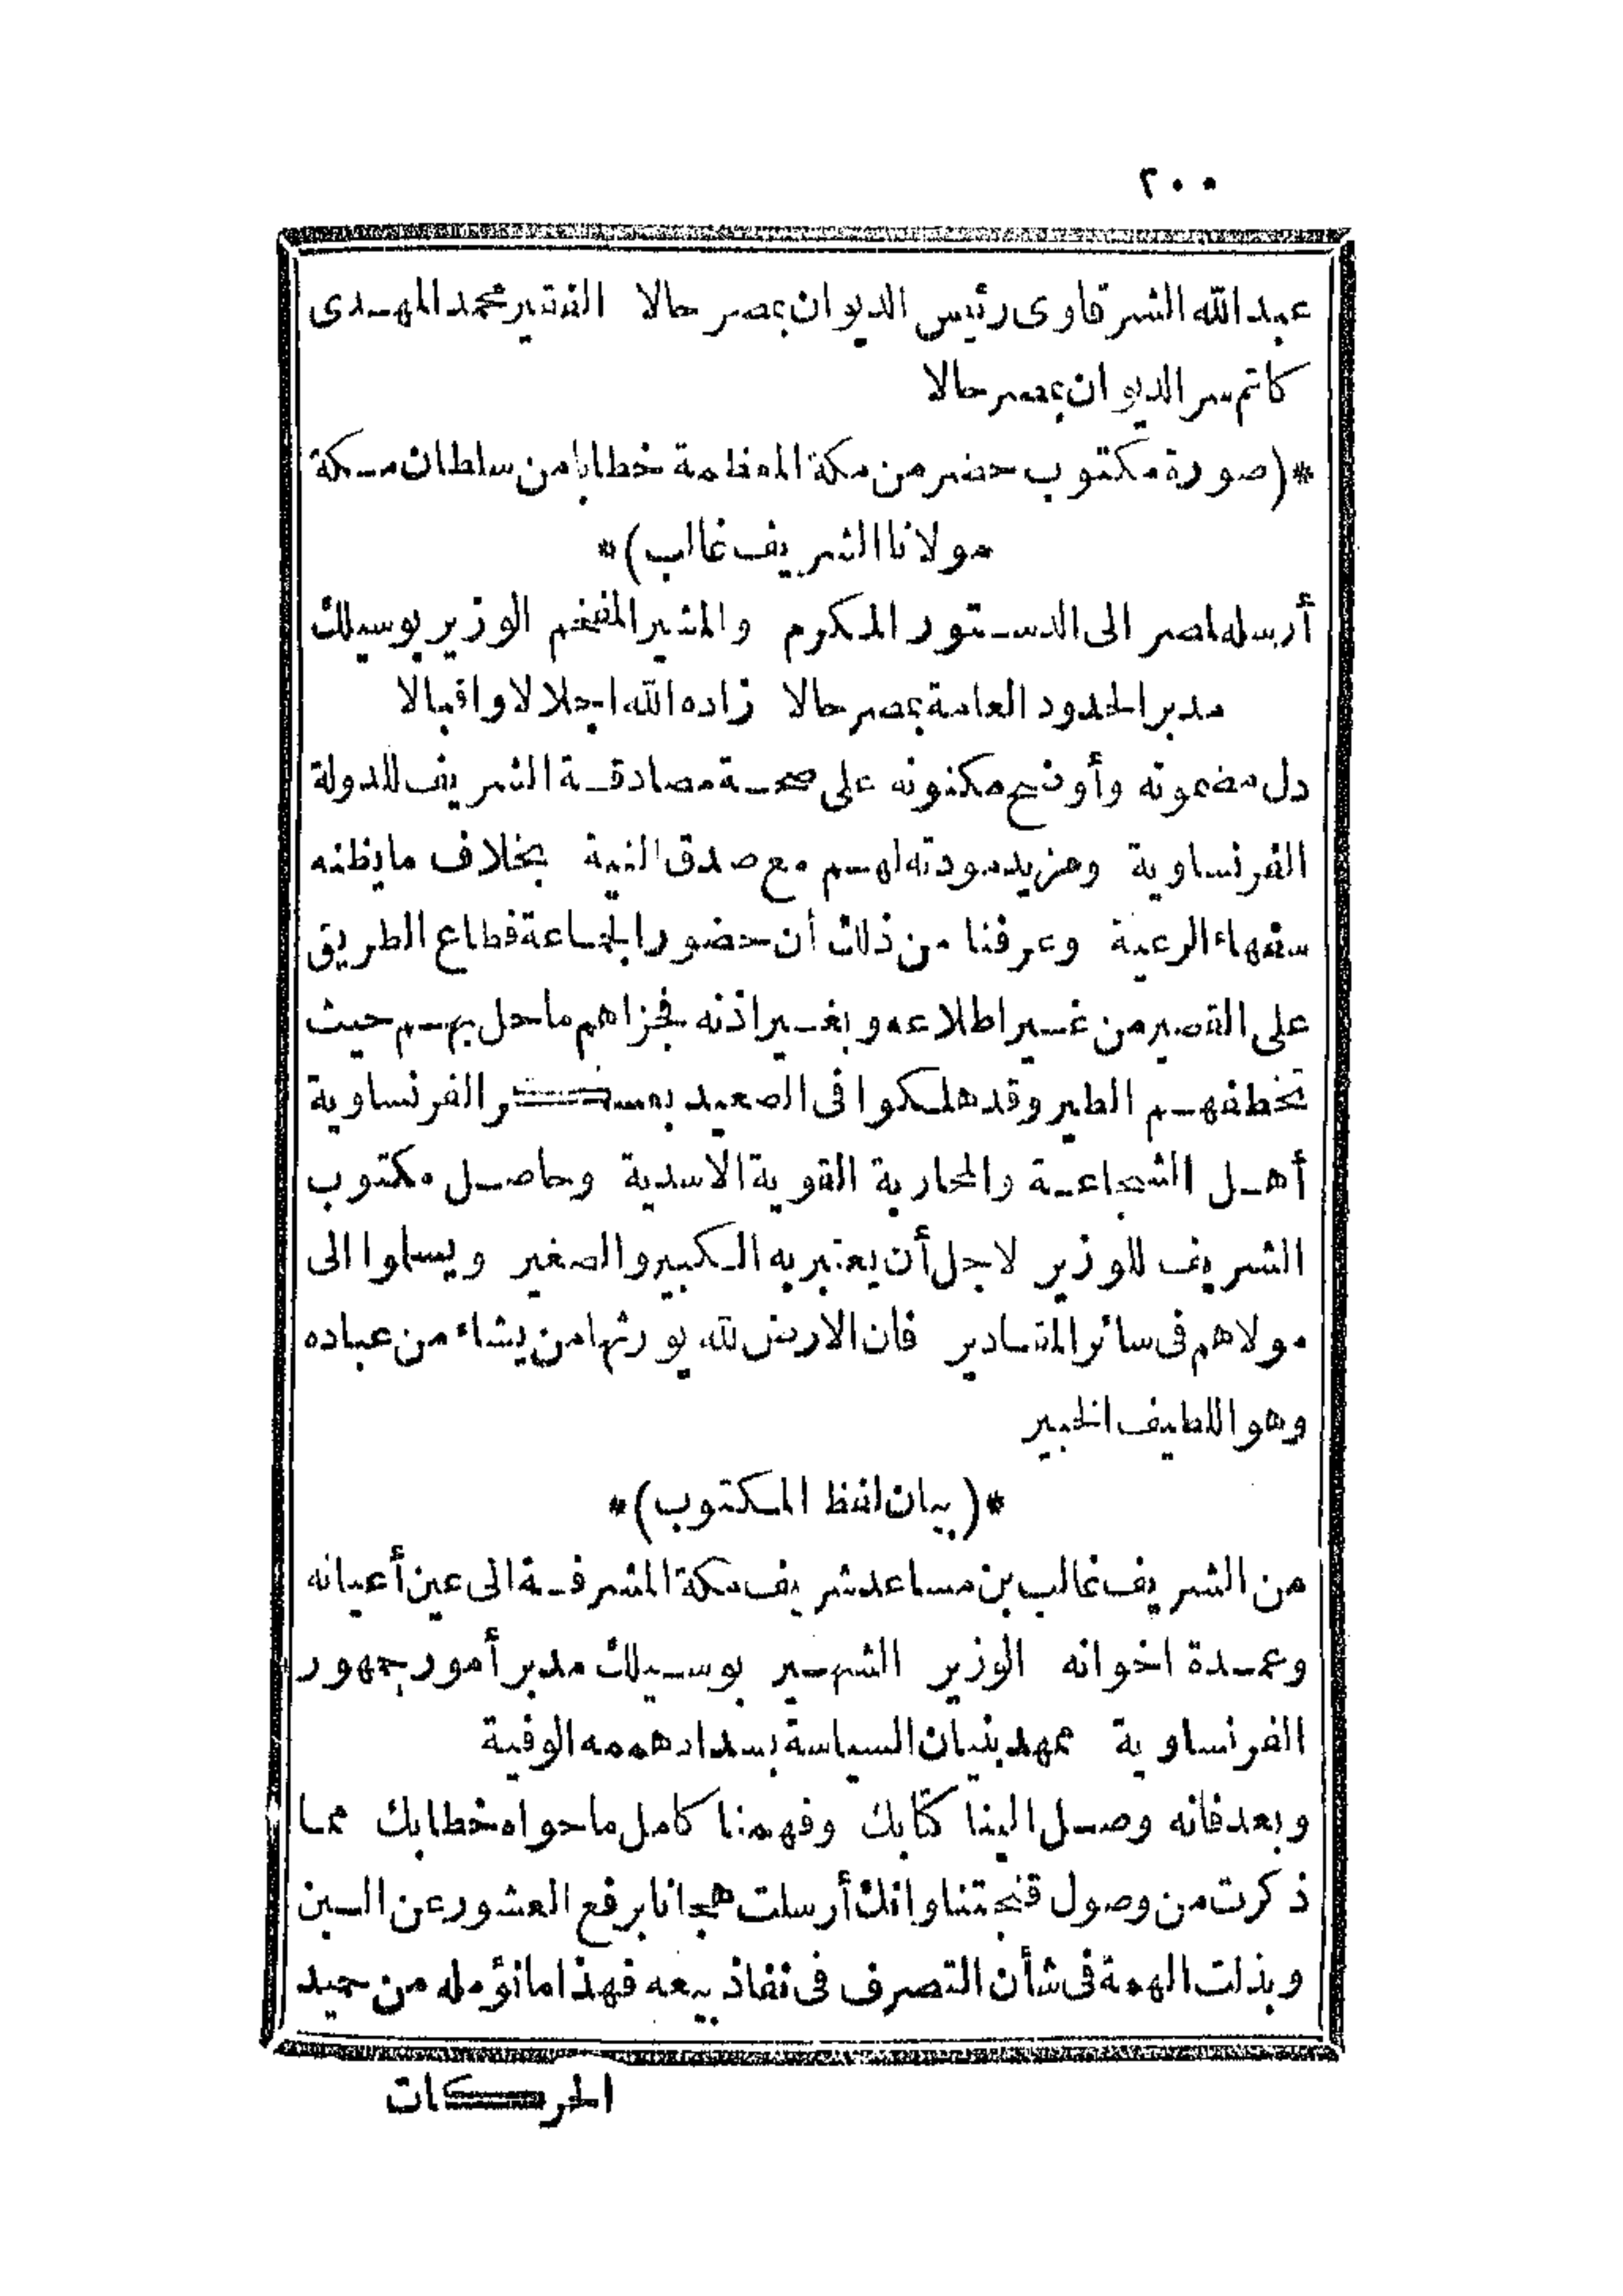 ٢٠٠
عبد الله الشرقاوى رئيس الديوان بمصر حالا الفقير محمد المهدى
كاتم سر الديوان بمصر حالا
*(صورة مكتوب حضر من مكة المعظمة خطابا من سلطان مكة
مولانا الشريف غالب)*
أرسله لمصر الى الدستور المكرم والمشير المفخم الوزير بوسيلك
مدبر الحدود العامة بمصر حالا زاده الله اجلالا واقبالا
دل مضمونه وأوضح مكنونه على صحة مصادقة الشريف للدولة
الفرنساوية ومزيد مودته لهم مع صدق النية بخلاف ما يظنه
سفهاء الرعية وعرفنا من ذلك أن حضور الجماعة قطاع الطريق
على القصير من غير اطلاعه وبغير اذنه فجزاهم ما حل بهم حيث
تخطفهم الطير وقد هلكوا فى الصعيد بعسكر الفرنساوية
أهل الشجاعة والمحاربة القوية الاسدية وحاصل مكتوب
الشريف للوزير لاجل أن يعتبر به الكبير والصغير ويسلموا الى
مولاهم فى سائر المقادير فان الارض لله يورثها من يشاء من عباده
وهو اللطيف الخبير
*(بيان لفظ المكتوب)*
من الشريف غالب بن مساعد شريف مكة المشرفة الى عين أعيانه
وعمدة اخوانه الوزير الشهير بوسيلك مدبر أمور جمهور
الفرنساوية ممهد بنيان السياسة بسداد هممه الوفية
وبعد فانه وصل الينا كتابك وفهمنا كامل ما حواه خطابك مما
ذكرت من وصول قنجتنا وانك أرسلت هجانا برفع العشور عن البن
وبذلت الهمة فى شأن التصرف فى نفاذ بيعه فهذا ما نؤمله من حميد
الحركات